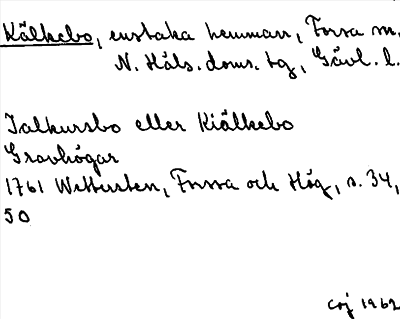 Kälkebo, enstaka hemman, Forsa sn.
N. Häls. doms. tg, Gävl. l.
Jalkursbo eller Kiälkebo
Gravhögar
1761 Wettersten, Forssa och Hög, s. 34,
50
1962